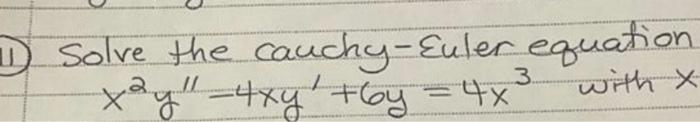 11) Solve the cauchy-Euler equation
x²y'' -4xy' +6y = 4x³ with x